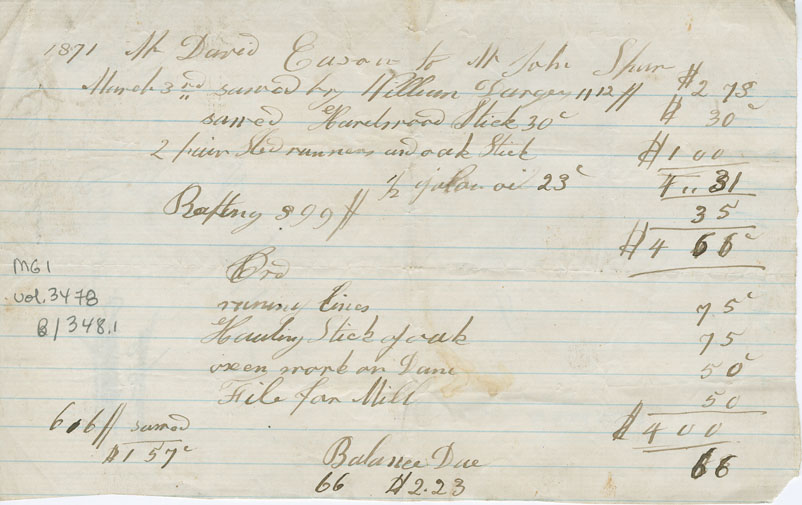 1871 Mr David Eason to Mr John Spurr
March 3rd sawed by William Gurgey 1112 ff $2 78
sawed Hardwood Stick 30c $ 30c
2 pair Sled runners and oak Stick $1 00
1/2 galon oil 23c 4,,31
Rafting 899 ff 35
$4 66c
Crd
running lines 75c
Hauling Stick of oak 75
oxen work on Dam 50c
File for Mill 50
$4 00
Balance Due 66
66 $2.23
606 ff sawed
$1 57c
MG1
vol.3478
B/348.1